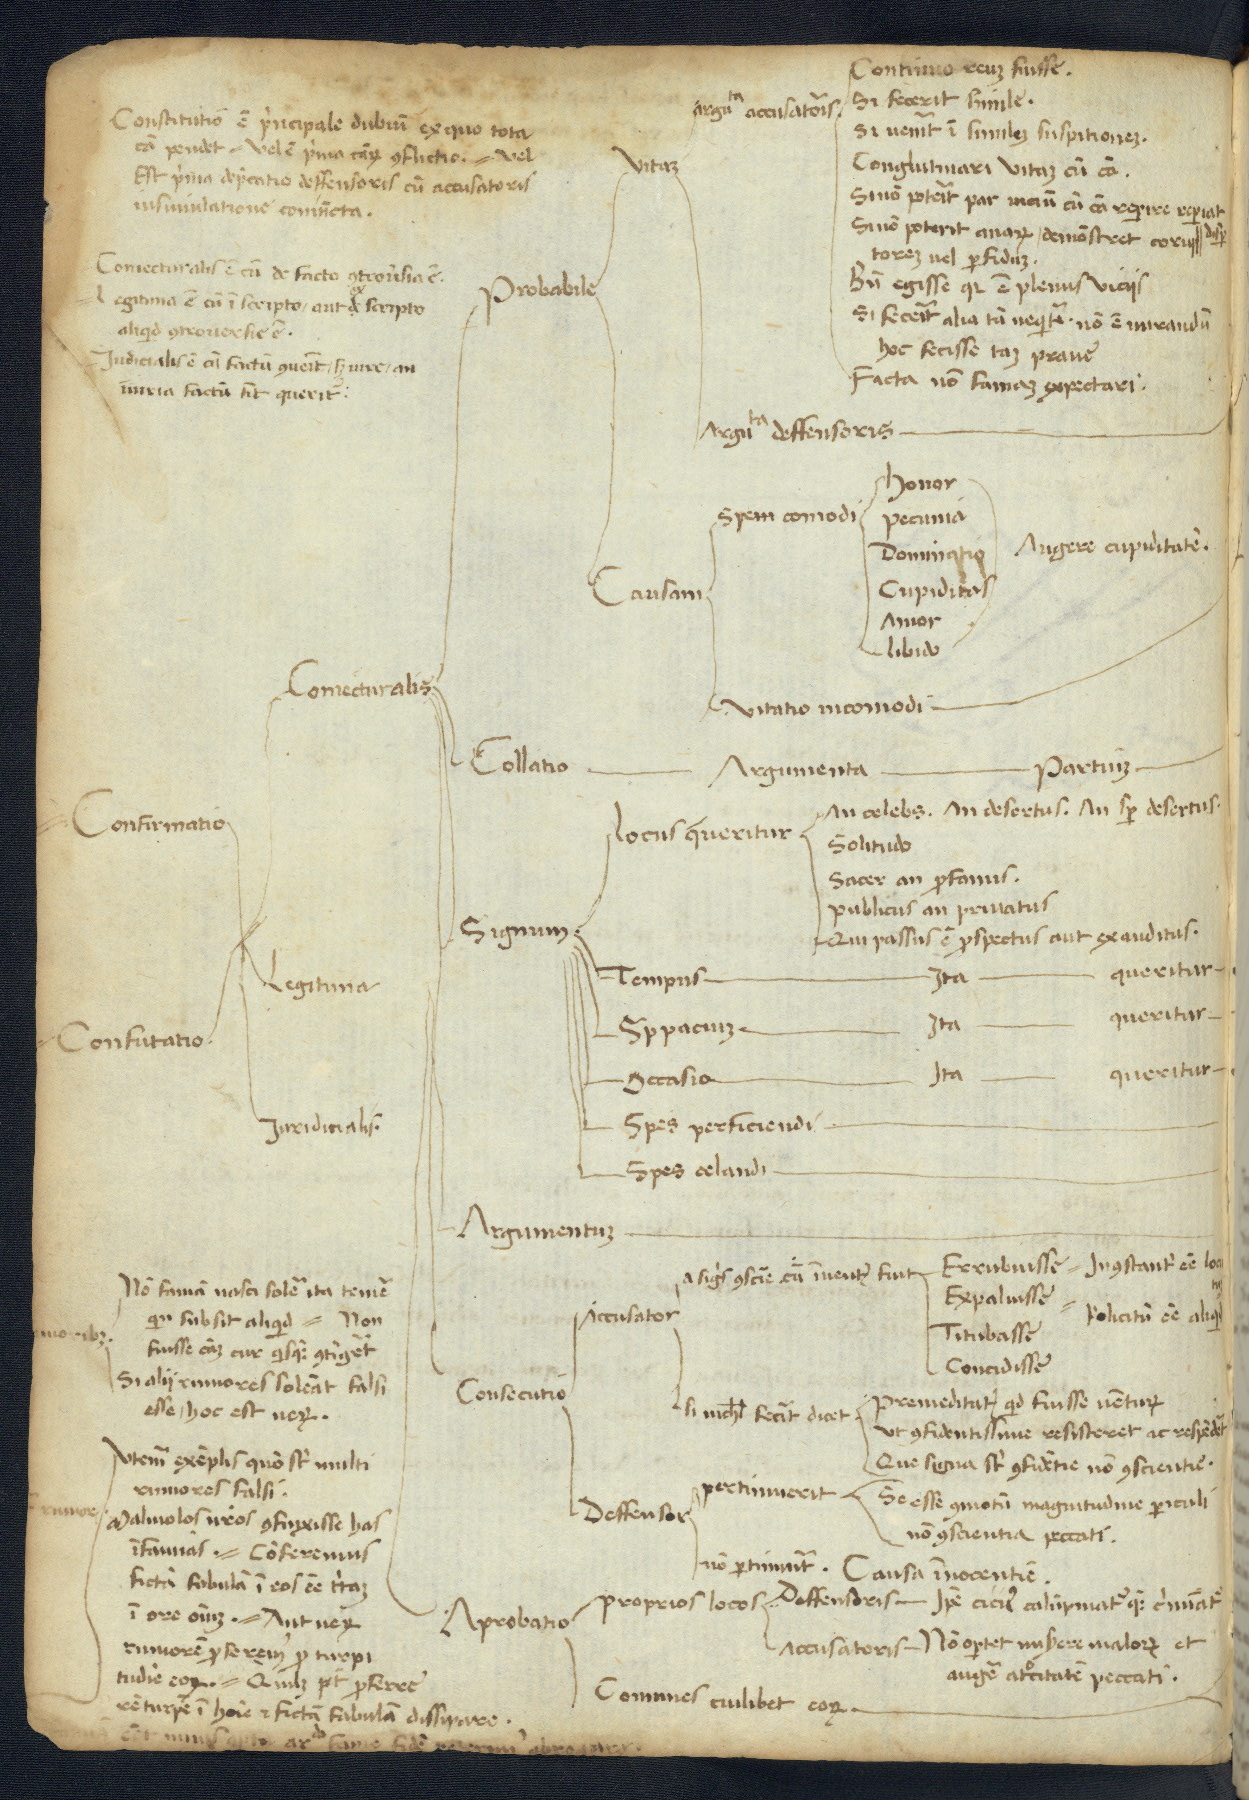 Constitutio ē pͥncipale dubiū ex quo tota
cā pendet = vel ē pͥma cāꝝ ꝯflictio. = vel
Est pͥma dep̄catio deffensoris cū accusatoris
insimulatione coniūcta.
Coniecturalis ē cū de facto ꝯtrouͥsia ē.
Legitima ē cū ī scripto / aut ex scripto
aliqͥd ꝯtrouersie ē.
Iudicialis ē cū factū ꝯueīt / sꝫ iure / an
iniuria factū sit querit̄.
Confirmatio
Confutatio
Coniecturalis
Legitima
Iuridicialis.
Probabile
Vitaꝫ
Argūta accusatoris
Continuo reuꝫ fuisse.
Si fecerit simile.
Si uenīt ī simileꝫ suspitioneꝫ.
Conglutinari vitaꝫ cū cā.
Sinō poterit par uiciū cū cā reperire reperiat
Sinō poterit anaꝝ / demōstret corrup
toreꝫ uel ꝑfiduꝫ.
Bn̄ egisse qꝛ ē plenus viciis
Si fecerit alia tā neqͥter. nō ē mirandū
hoc fecisse taꝫ praue
Facta nō famaꝫ expectari.
Argūta deffensoris
Causam
Spem comodi
honor
pecunia
Dominatio
Cupiditas
Amor
libido
Augere cupiditatē.
Vitatio incomodi
Collatio Argumenta Partiuꝫ
Signum
locus queritur
An celebs. An desertus. An sꝑ desertus.
Solitudo
Sacer an ꝓfanus.
publicus an priuatus
Qui passus ē ꝓspectus aut exauditus.
Tempus Ita queritur
Sppaciuꝫ Ita queritur
Occasio Ita queritur
Spes perficiendi
Spes celandi
Argumentuꝫ
Consecutio
Accusator
a sigͥs ꝯsciē cū īuent fuit
Errubuisse = Inꝯstant̄ eē loc
Expaluisse = Policitū eē aliqͥd
Titubasse
Concidisse
si nichͥl fecīt dicet
Premeditatꝰ qͥd fuisse uēturꝝ
Ut ꝯfidentissime resisteret ac respōdēt
Que signa sūt ꝯfidētie nō ꝯscientie.
Deffensor
pertimuerit
Se esse ꝯmotū magnitudine ꝑiculi
nō ꝯscientia peccati.
nō ꝑtimuīt. Causa īnocentie.
Aprobatio
Proprios locos
Deffensoris
Accusatoris Nō oportet misere maloꝝ et
augē atrocitatē peccati.
Comunes cuilibet eoꝝ.
moribꝫ.
Nō famā nasci solē ita temē
qͥn subsit aliqͥd = Non
fuisse cāꝫ cur qͥsqꝫ ꝯfingēt
Si alij rumores soleāt falsi
esse / hoc est ueꝝ.
rumore
Utem̄ exēplis quō sūt multi
rumores falsi.
Maliuolos nr̄os ꝯfinxisse has
īfamias. = Cōferemus
fictā fabulā ī eos eē
ī ore oīuꝫ. = Aut ueꝝ
rumorē ꝓferemꝰ ꝑ turpi
tudīe eoꝝ. =
rē turpē ī hoīe ⁊ fictā fabulā dissipare.